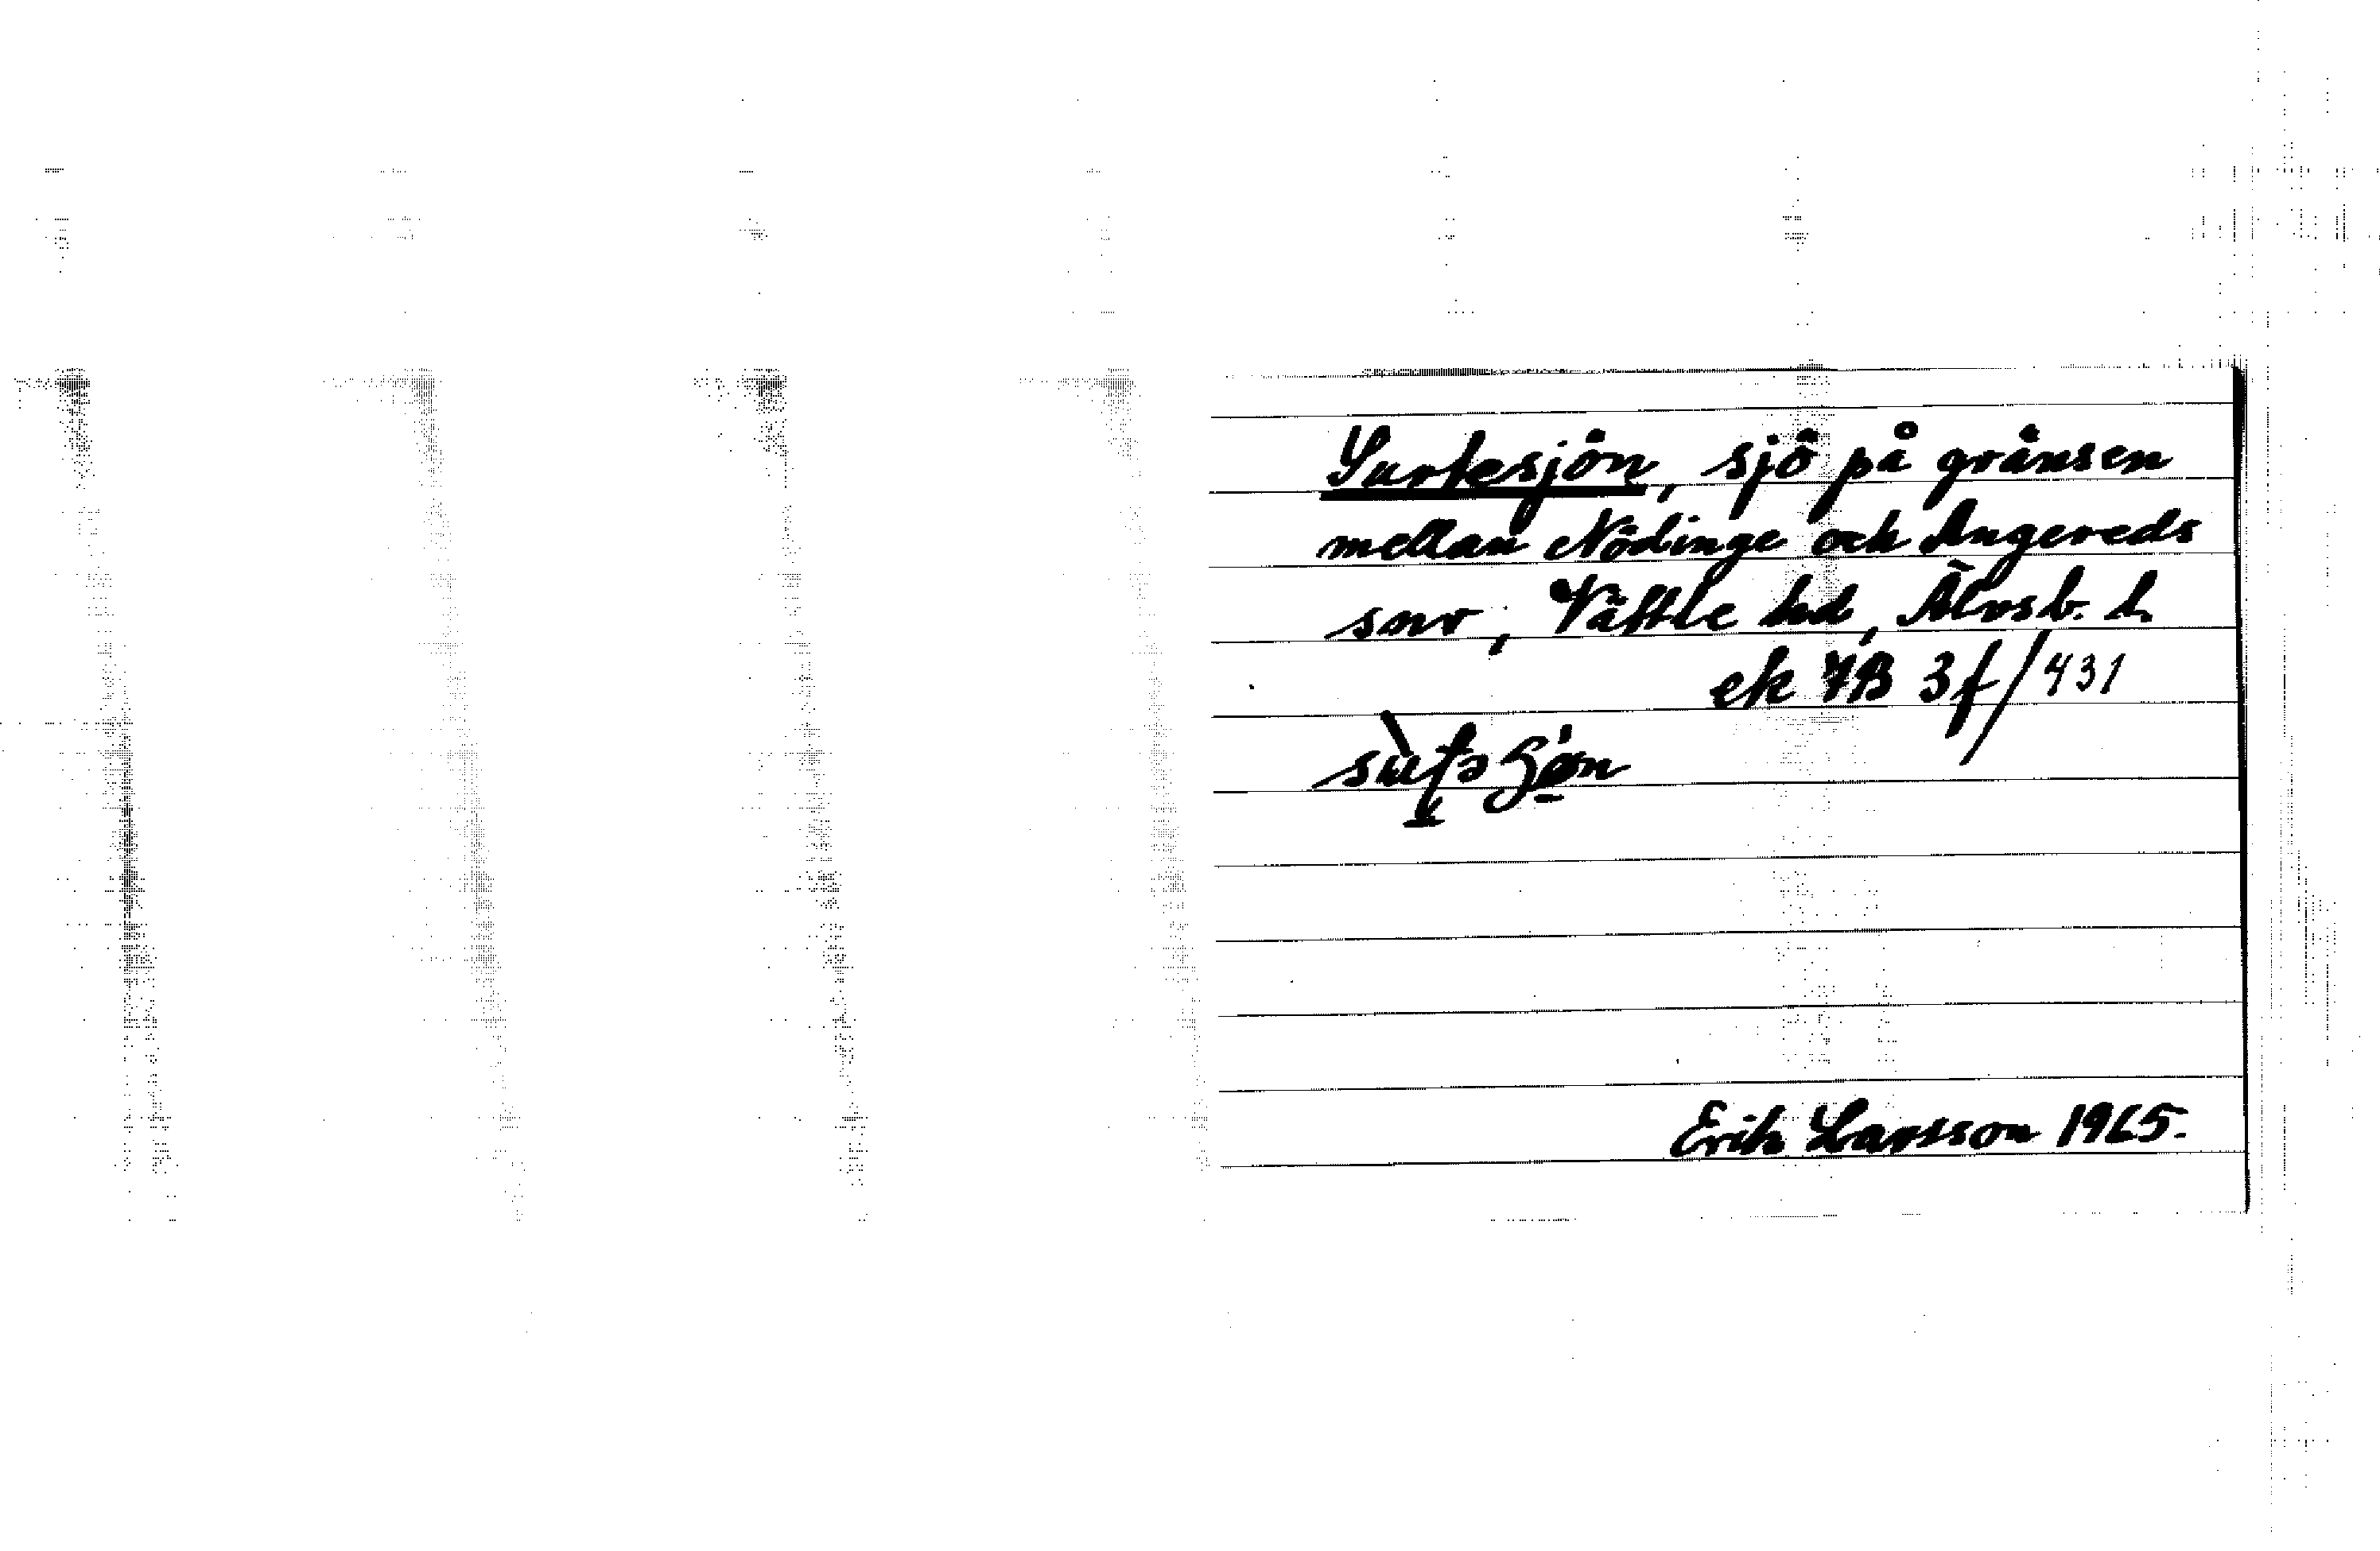 Surtesjön, sjö på gränsen
mellan Nödinge och Angereds
snr, Vättle hd, Älvsb. l.
ek 7B 3f/431
Erik Larsson 1965.